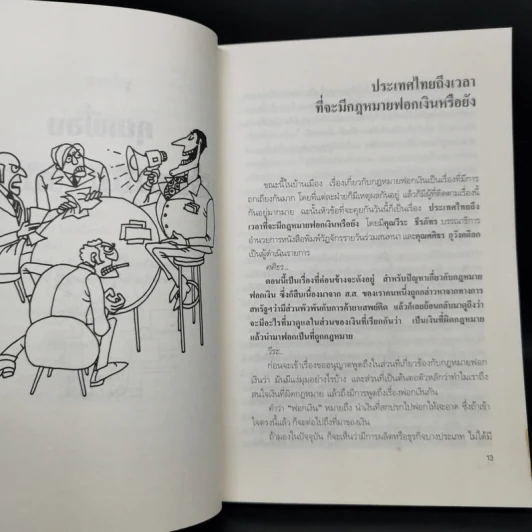 ประเทศไทยถึงเวลา
ที่จะมีกฎหมายฟอกเงินหรือยัง
ขณะนี้ในบ้านเมือง เรื่องเกี่ยวกับกฎหมายฟอกเงินเป็นเรื่องที่มีการ
ถกเถียงกันมาก โดยที่แต่ละฝ่ายก็มีเหตุผลกันอยู่ แล้วก็มีผู้ที่ติดตามเรื่องนี้
กันอยู่มากมาย ฉะนั้นหัวข้อที่จะคุยกันวันนี้ก็เป็นเรื่อง ประเทศไทยถึง
เวลาที่จะมีกฎหมายฟอกเงินหรือยัง โดยมีคุณวีระ ธีรภัทร บรรณาธิการ
อำนวยการหนังสือพิมพ์วัฏจักรรายวันร่วมสนทนา และคุณศศิธร
เป็นผู้ดำเนินรายการ
ศศิธร..
ตอนนี้เป็นเรื่องที่ค่อนข้างจะดังอยู่ สำหรับปัญหาเกี่ยวกับกฎหมาย
ฟอกเงิน ซึ่งก็สืบเนื่องมาจาก ส.ส. ของเราคนหนึ่งถูกกล่าวหาจากทางการ
สหรัฐฯว่ามีส่วนพัวพันกับการค้ายาเสพย์ติด แล้วก็เลยย้อนกลับมาดูถึงว่า
จะมีอะไรที่มาดูแลในส่วนของเงินที่เรียกกันว่า เป็นเงินที่ผิดกฎหมาย
แล้วนำมาฟอกเป็นที่ถูกกฎหมาย
วีระ..
ก่อนจะเข้าเรื่องขออนุญาตพูดถึงในส่วนที่เกี่ยวข้องกับกฎหมายฟอก
เงินว่า มันมีแง่มุมอย่างไรบ้าง และส่วนที่เป็นต้นตอตัวหลักว่าทำไมเราถึง
สนใจเงินที่ผิดกฎหมาย แล้วถึงมีการพูดถึงเรื่องฟอกเงินกัน
คำว่า "ฟอกเงิน" หมายถึง นำเงินที่สกปรกไปฟอกให้สะอาด ซึ่งถ้าเข้า
ใจตรงนี้แล้ว ก็จะต่อไปถึงที่มาของเงิน
ถ้ามองในปัจจุบัน ก็จะเห็นว่ามีการผลิตหรือธุรกิจบางประเภท ไม่ได้มี
13